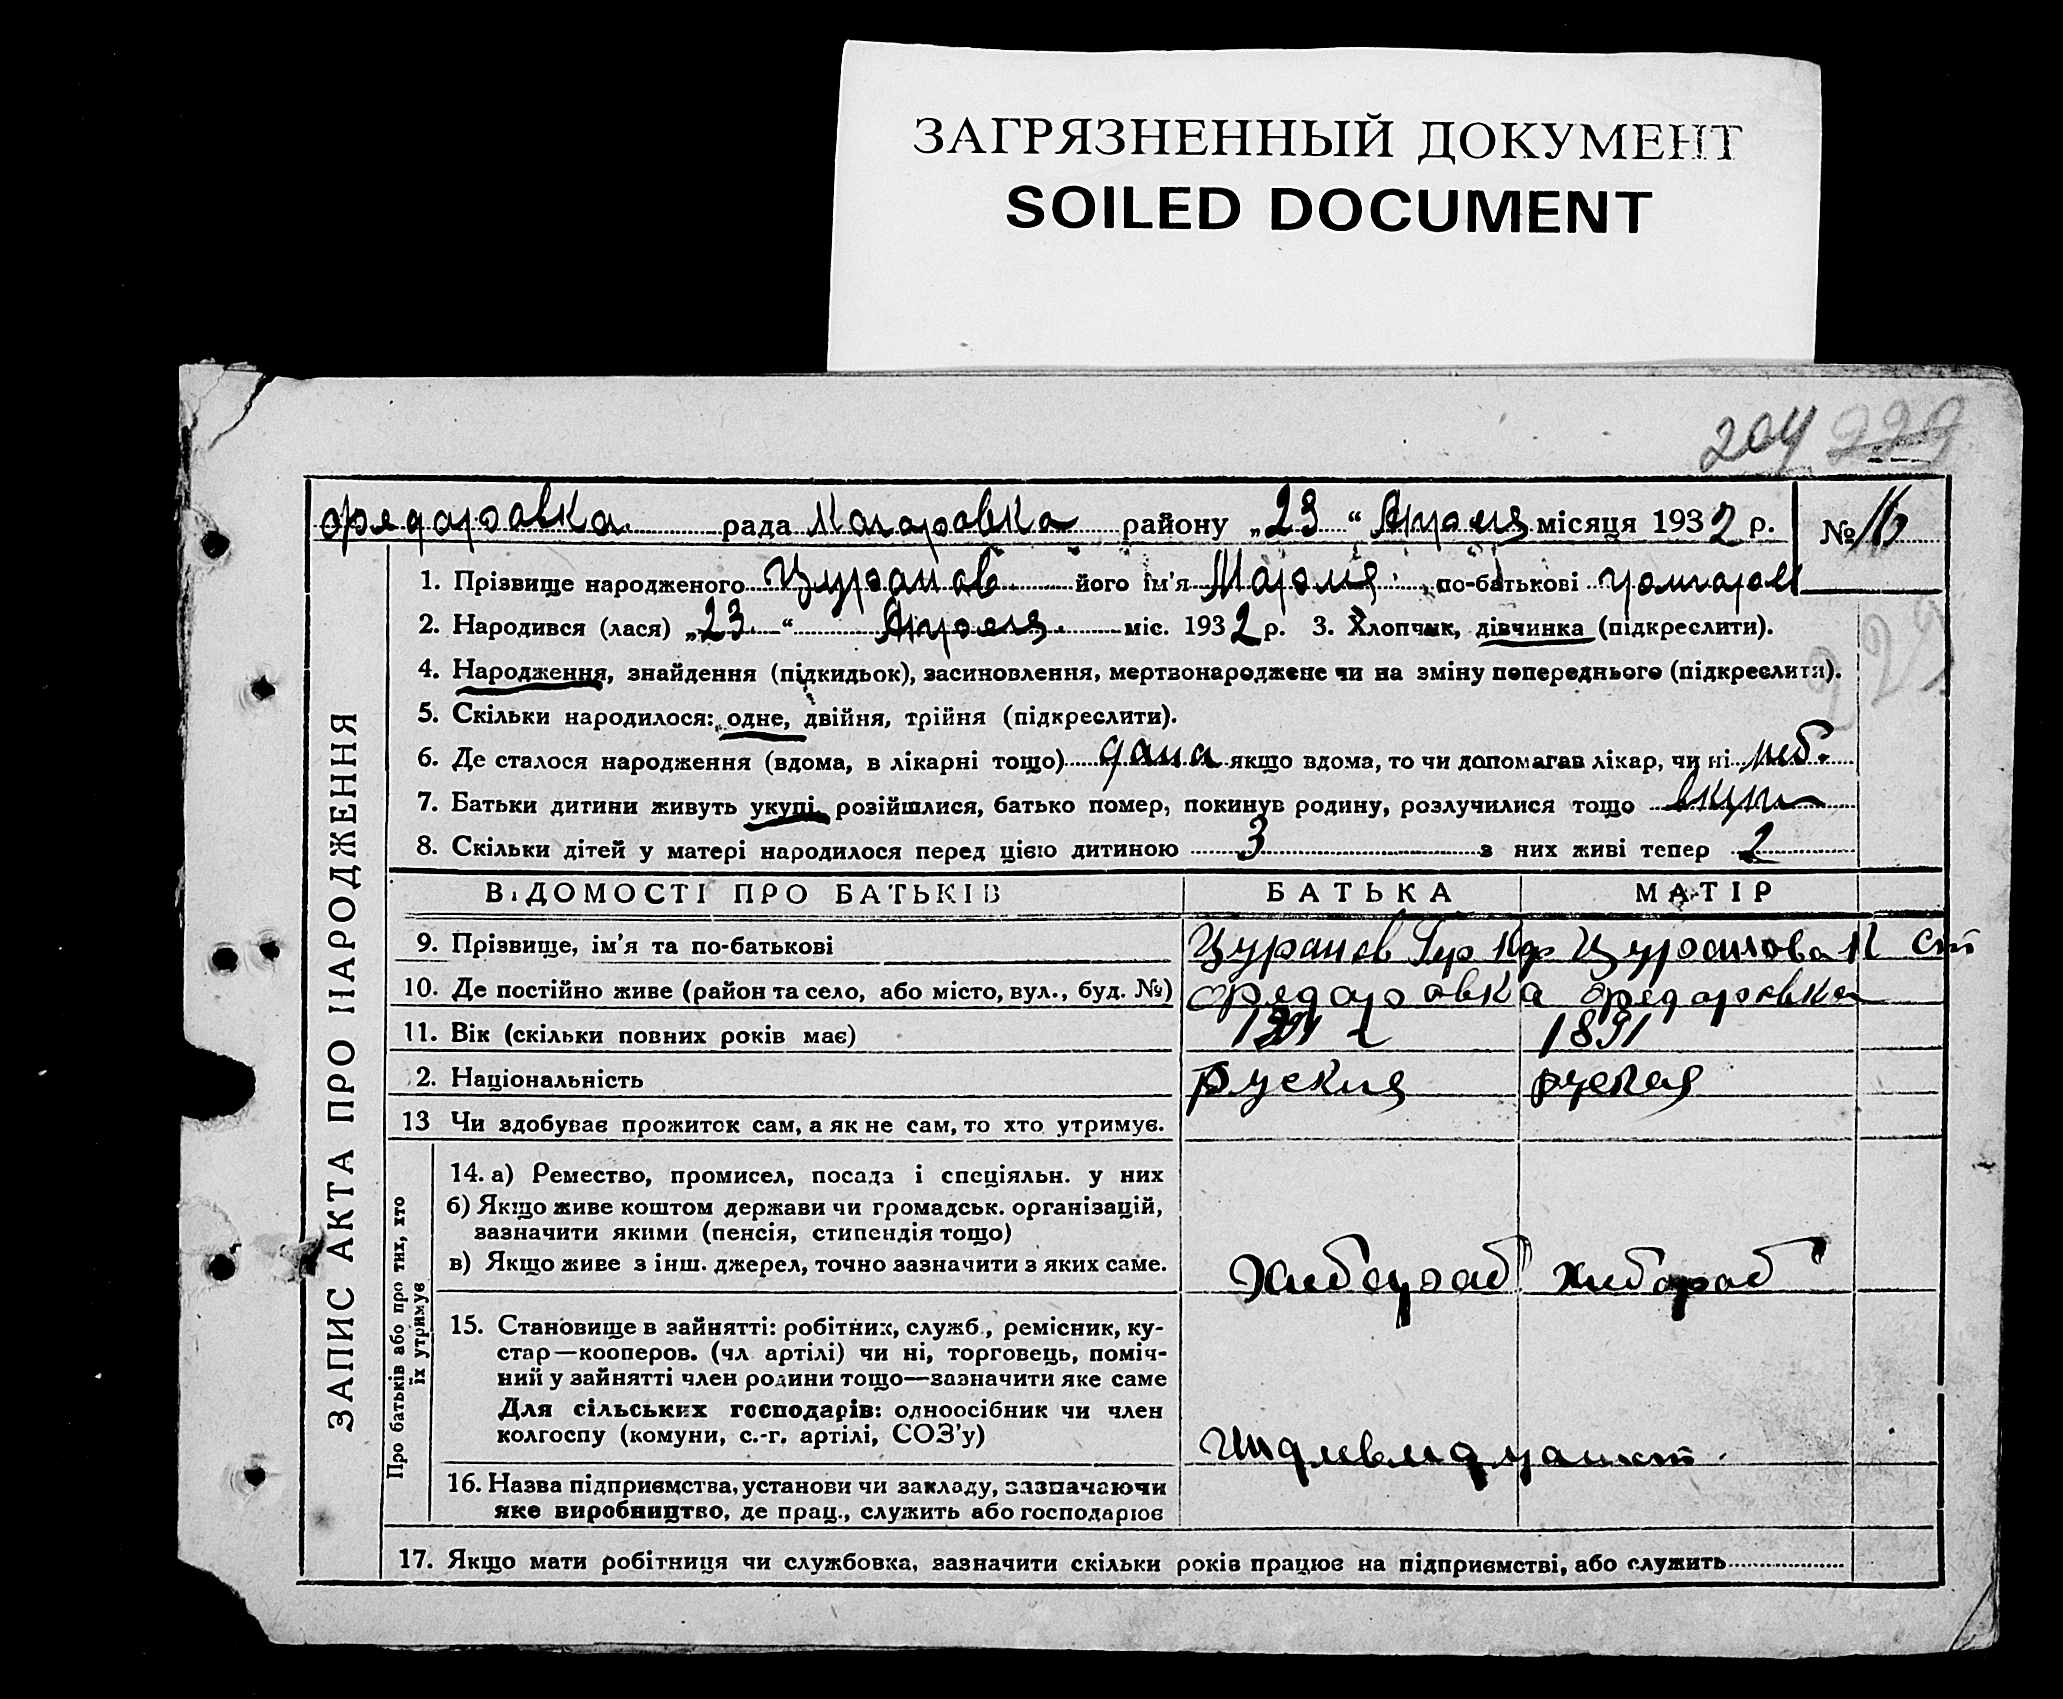 ЗАГРЯЗНЕННЫЙ ДОКУМЕНТ
SOILED DOCUMENT
204 229
рада района „23“ Апреля місяця 1932 р. № 16
1. Прізвище народженого його ім’я Мария по-батькові
2. Народився (лася) „23“ Апреля міс. 1932 р. 3. Хлопчик, дівчинка (підкреслити).
4. Народження, знайдення (підкидьок), засиновлення, мертвонароджене чи на зміну попереднього (підкреслити).
5. Скільки народилося: одне, двійня, трійня (підкреслити).
6. Де сталося народження (вдома, в лікарні тощо) дома якщо вдома, то чи допомагав лікар, чи ні
7. Батьки дитини живуть укупі, розійшлися, батько помер, покинув родину, розлучилися тощо вкупи
8. Скільки дітей у матері народилося перед цією дитиною 3 з них живі тепер 2
ЗАПИС АКТА ПРО НАРОДЖЕННЯ
ВІДОМОСТІ ПРО БАТЬКІВ БАТЬКА МАТІР
9. Прізвище, ім’я та по-батькові
10. Де постійно живе (район та село, або місто, вул., буд. №)
11. Вік (скільки повних років має) 1891
2. Національність руския руская
13 Чи здобував прожиток сам, а як не сам, то хто утримує.
Про батьків або про тих, хто
їх утримує
14. а) Ремество, промисел, посада і спеціяльн. у них
б) Якщо живе коштом держави чи громадськ. організацій,
зазначити якими (пенсія, стипендія тощо)
в) Якщо живе з інш. джерел, точно зазначити з яких саме.
хлебороб хлебороб
15. Становище в зайнятті: робітник, служб., ремісник, ку-
стар—кооперов. (чл. артілі) чи ні, торговець, поміч-
ний у зайнятті член родини тощо—зазначити яке саме
Для сільських господарів: одноосібник чи член
колгоспу (комуни, с.-г. артілі, СОЗ’у)
16. Назва підприємства, установи чи закладу, зазначаючи
яке виробництво, де прац., служить або господарює
17. Якщо мати робітниця чи службовка, зазначити скільки років працює на підприємстві, або служить